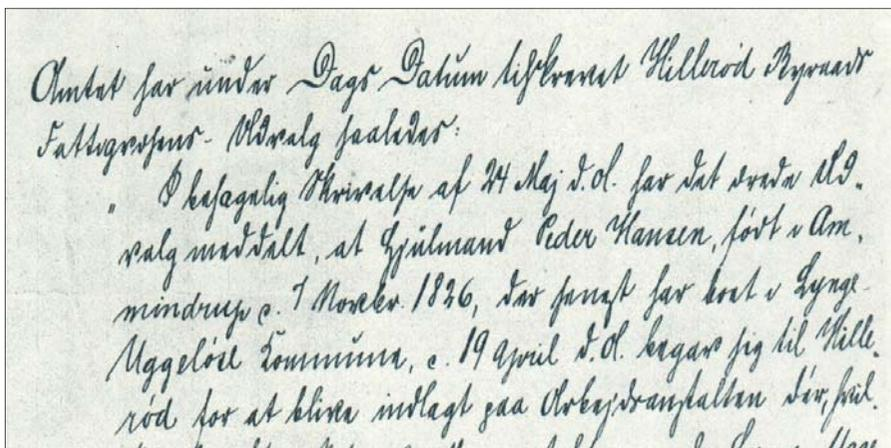 Amtet har under Dags Datum tilskrevet Hilleröd Byraads
Fattigvæsens-Udvalg saaledes:
"I behagelig Skrivelse af 24 Maj d.A. har det ærede Ud-
valg meddelt, at Hjulmand Peder Hansen, født i Am-
mindrup d. 7 Novbr. 1826, der senest har boet i Lynge-
Uggelöse Kommune, d. 19 April d.A. begav sig til Hille-
röd for at blive indlagt paa Arbejdsanstalten dér, hvil-